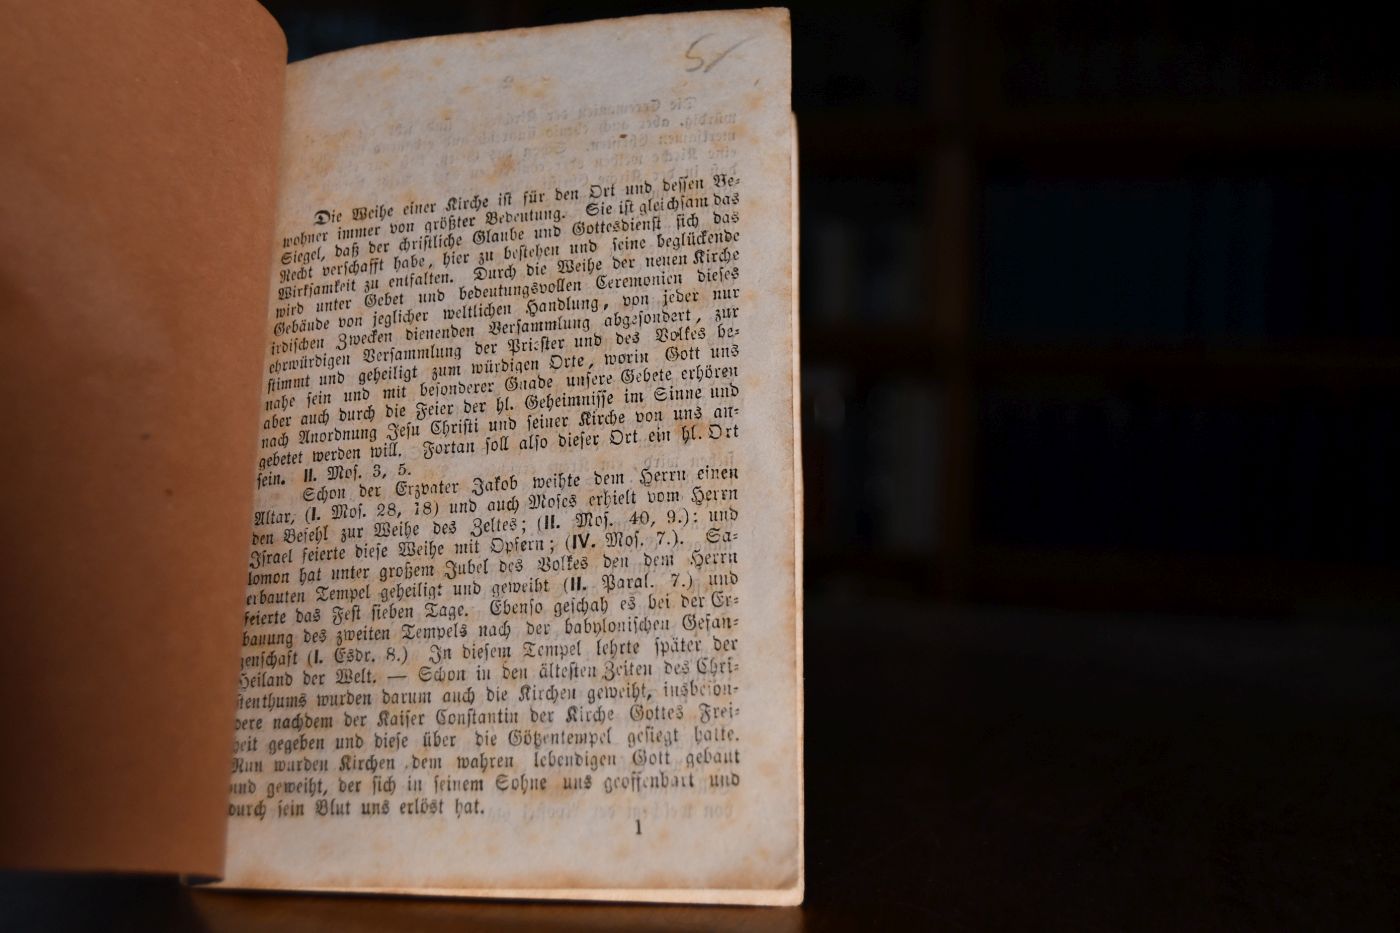 51
Die Weihe einer Kirche ist für den Ort und dessen Be-
wohner immer von größter Bedeutung. Sie ist gleichsam das
Siegel, daß der christliche Glaube und Gottesdienst sich das
Recht verschafft habe, hier zu bestehen und seine beglückende
Wirksamkeit zu entfalten. Durch die Weihe der neuen Kirche
wird unter Gebet und bedeutungsvollen Ceremonien dieses
Gebäude von jeglicher weltlichen Handlung, von jeder nur
irdischen Zwecken dienenden Versammlung abgesondert, zur
ehrwürdigen Versammlung der Priester und des Volkes be-
stimmt und geheiligt zum würdigen Orte, worin Gott uns
nahe sein und mit besonderer Gnade unsere Gebete erhören
aber auch durch die Feier der hl. Geheimnisse im Sinne und
nach Anordnung Jesu Christi und seiner Kirche von uns an-
gebetet werden will. Fortan soll also dieser Ort ein hl. Ort
sein. II. Mos. 3, 5.
Schon der Erzvater Jakob weihte dem Herrn einen
Altar, (I. Mos. 28, 18) und auch Moses erhielt vom Herrn
den Befehl zur Weihe des Zeltes; (II. Mos. 40, 9.): und
Israel feierte diese Weihe mit Opfern; (IV. Mos. 7.). Sa-
lomon hat unter großem Jubel des Volkes den dem Herrn
erbauten Tempel geheiligt und geweiht (II. Paral. 7.) und
feierte das Fest sieben Tage. Ebenso geschah es bei der Er-
bauung des zweiten Tempels nach der babylonischen Gefan-
genschaft (I. Esdr. 8.) In diesem Tempel lehrte später der
Heiland der Welt. — Schon in den ältesten Zeiten des Chri-
stenthums wurden darum auch die Kirchen geweiht, insbeson-
dere nachdem der Kaiser Constantin der Kirche Gottes Frei-
heit gegeben und diese über die Götzentempel gesiegt hatte.
Nun wurden Kirchen dem wahren lebendigen Gott gebaut
und geweiht, der sich in seinem Sohne uns geoffenbart und
durch sein Blut uns erlöst hat.
1